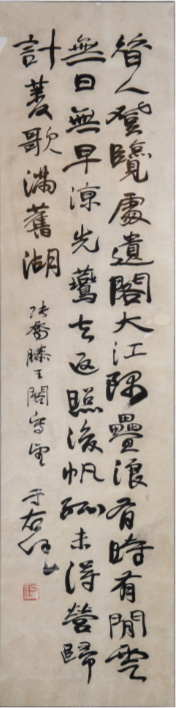 昔人登覽處遺閣大江隅疊浪有時有閒雲
無日無早涼先鷰去返照後帆孤未得營歸
計菱歌滿舊湖
張喬滕王閣寫望 于右任